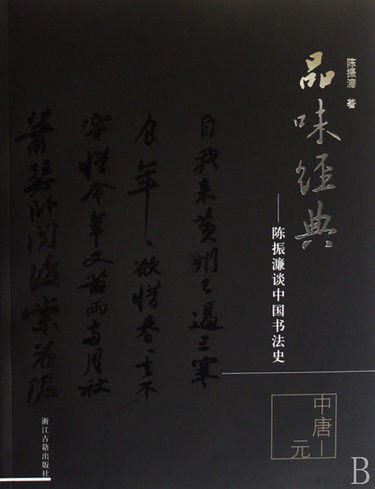 陈振濂 著
品味经典
——陈振濂谈中国书法史
中唐—
元
自我来黄州已过三寒
食年〻欲惜春春去不
容惜今年又苦雨两月秋
萧瑟卧闻海棠花泥
浙江古籍出版社
B